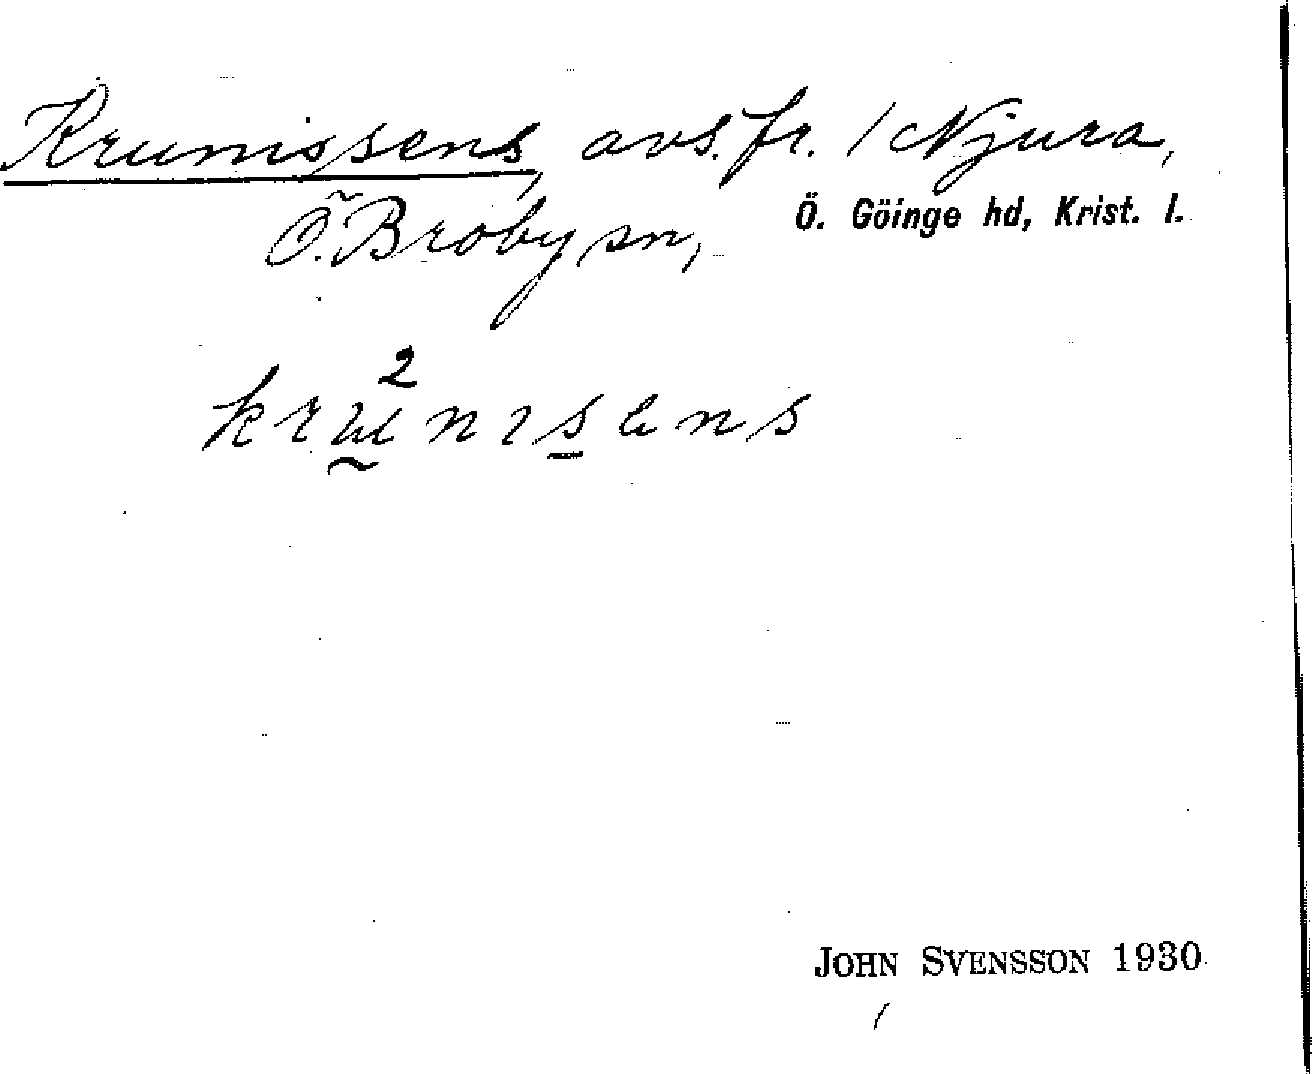 Krunissens, avs. fr. 1 Njura,
Ö. Broby sn, Ö. Göinge hd, Krist. l.
JOHN SVENSSON 1930